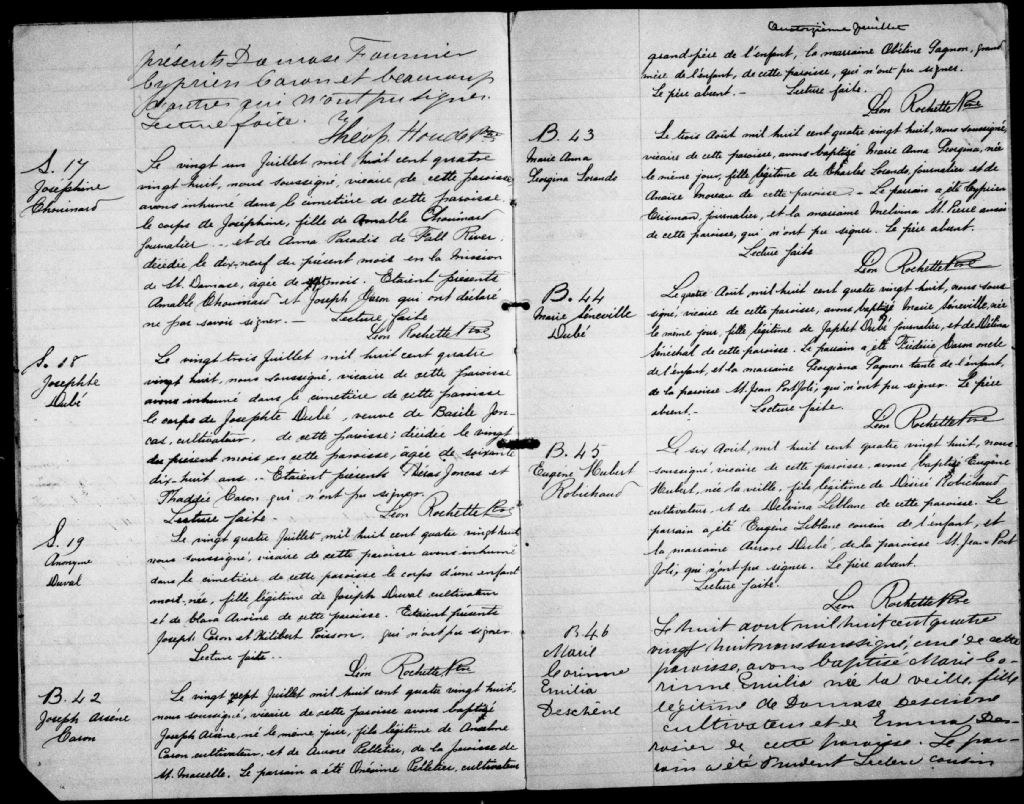 présents Damase Fournier
Cyprien Caron et beaucoup
d'autres qui n'ont pu signer.
Lecture faite.
Théop. Houde Ptre
S. 17
Joséphine
Chouinard
Le vingt un Juillet mil huit cent quatre
vingt huit, nous soussigné, vicaire de cette paroisse,
avons inhumé dans le cimetière de cette paroisse
le corps de Joséphine, fille de Amable Chouinard
journalier - et de Anna Paradis de Fall River,
décédée le dix-neuf du présent mois en la mission
de St. Damase, agée de mois. Etaient présents
Amable Chouinard et Joseph Caron qui ont déclaré
ne pas savoir signer. - Lecture faite
Léon Rochette Ptre
S. 18
Josephte
Dubé
Le vingt trois Juillet mil huit cent quatre
vingt huit, nous soussigné, vicaire de cette paroisse
avons inhumé dans le cimetière de cette paroisse
le corps de Josephte Dubé, veuve de Basile Jon-
cas, cultivateur, de cette paroisse; décédée le vingt
du présent mois en cette paroisse, agée de soixante
dix-huit ans. - Etaient présents Joncas et
Thaddée Caron qui n'ont pu signer.
Lecture faite. Léon Rochette Ptre
S. 19
Anonyme
Duval
Le vingt quatre Juillet mil huit cent quatre vingt huit
nous soussigné, vicaire de cette paroisse avons inhumé
dans le cimetière de cette paroisse le corps d'une enfant
mort-née, fille légitime de Joseph Duval cultivateur
et de Clara Avoine de cette paroisse. Etaient présents
Joseph Caron et Philibert Poisson, qui n'ont pu signer.
Lecture faite. -
Léon Rochette Ptre
B. 42
Joseph Arsène
Caron
Le vingt sept Juillet mil huit cent quatre vingt huit,
nous soussigné, vicaire de cette paroisse avons baptizé
Joseph Arsène, né le même jour, fils légitime de Anselme
Caron cultivateur, et de Aurore Pelletier, de la paroisse de
St. Marcelle. Le parrain a été Onésime Pelletier, cultivateur
Quatorzième feuillet
grand-père de l'enfant, la marraine Obéline Gagnon, grand
mère de l'enfant, de cette paroisse, qui n'ont pu signer.
Le père absent. - Lecture faite.
Léon Rochette Ptre
B. 43
Marie Anna
Georgina Lorando
Le trois Août mil huit cent quatre vingt huit, nous soussigné,
vicaire de cette paroisse, avons baptizé Marie Anna Georgina, née
le même jour, fille légitime de Charles Lorando, journalier et de
Anaïse Moreau de cette paroisse - Le parrain a été Cyprien
journalier, et la marraine Melvina St. Pierre aussi
de cette paroisse, qui n'ont pu signer. Le père absent.
Lecture faite
Léon Rochette Ptre
B. 44
Marie Séneville
Dubé
Le quatre Août, mil huit cent quatre vingt huit, nous sous-
signé, vicaire de cette paroisse, avons baptizé Marie Séneville, née
le même jour, fille légitime de Japhet Dubé journalier, et de Délina
Sénéchal de cette paroisse. Le parrain a été Frédéric Caron oncle
de l'enfant, et la marraine Georgiana Gagnon tante de l'enfant,
de la paroisse St. Jean Port Joli, qui n'ont pu signer. Le père
absent. - Lecture faite.
Léon Rochette Ptre
B. 45
Eugène Hubert
Robichaud
Le six Août, mil huit cent quatre vingt huit, nous
soussigné, vicaire de cette paroisse, avons baptizé Eugène
Hubert, née la veille, fils légitime de Désiré Robichaud
cultivateur, et de Delvina Leblanc de cette paroisse. Le
parrain a été Eugène Leblanc cousin de l'enfant, et
la marraine Aurore Dubé, de la paroisse St. Jean Port
Joli, qui n'ont pu signer. Le père absent.
Lecture faite.
Léon Rochette Ptre
B. 46
Marie
Corinne
Emilia
Deschène
Le huit aout mil huit cent quatre
vingt huit nous soussigné, curé de cette
paroisse, avons baptisé Marie Co-
rinne Emilia née la veille, fille
légitime de Damase Deschène
cultivateur et de Emma Des-
rosier de cette paroisse. Le par-
rain a été Prudent Leclerc cousin